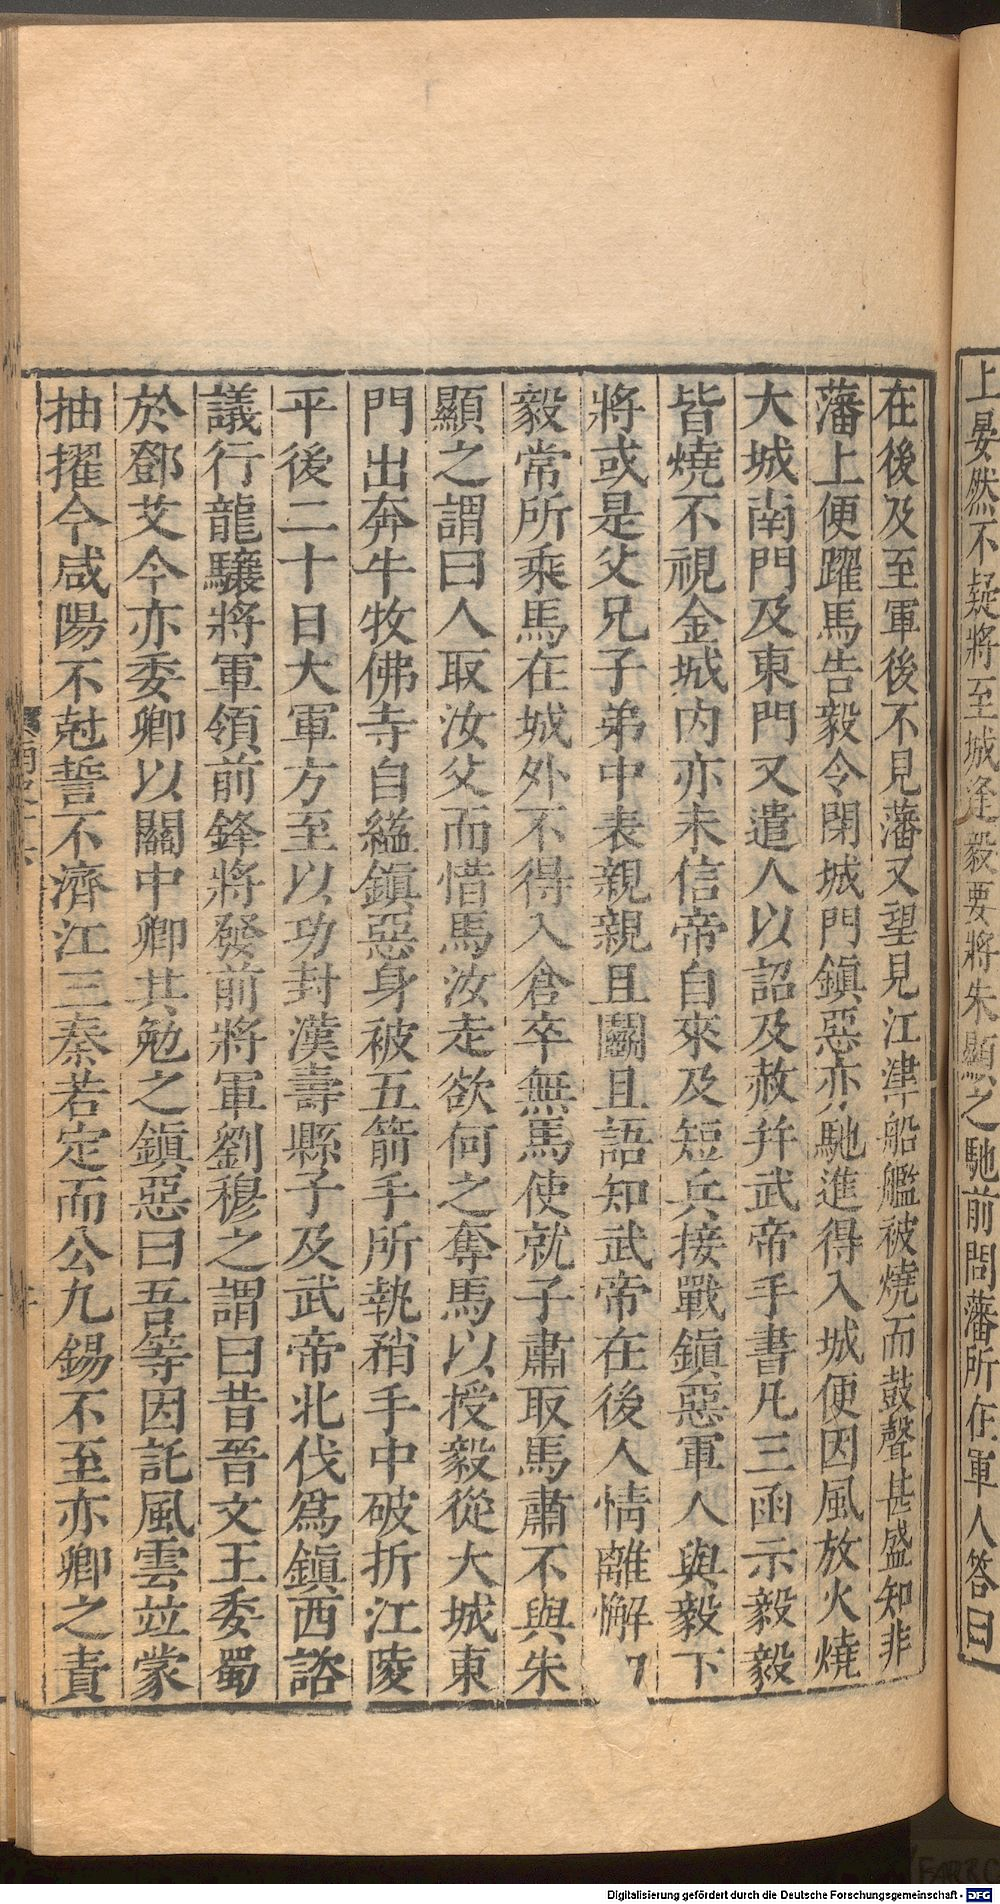 上晏然不疑將至城逢毅要將朱顯之馳前問藩所在軍人答曰
在後及至軍後不見藩又望見江津船艦被燒而鼓聲甚盛知非
藩上便躍馬告毅令閉城門鎮惡亦馳進得入城便因風放火燒
大城南門及東門又遣人以詔及赦并武帝手書凡三函示毅毅
皆燒不視金城内亦未信帝自來及短兵接戰鎮惡軍人與毅下
將或是父兄子弟中表親親且鬭且語知武帝在後人情離懈
毅常所乘馬在城外不得入倉卒無馬使就子肅取馬肅不與朱
顯之謂曰人取汝父而惜馬汝走欲何之奪馬以授毅從大城東
門出奔牛牧佛寺自縊鎮惡身被五箭手所執矟手中破折江陵
平後二十日大軍方至以功封漢壽縣子及武帝北伐爲鎮西諮
議行龍驤將軍領前鋒將發前將軍劉穆之謂曰昔晉文王委蜀
於鄧艾今亦委卿以關中卿其勉之鎮惡曰吾等因託風雲竝蒙
抽擢今咸陽不尅誓不濟江三秦若定而公九錫不至亦卿之責
Digitalisierung gefördert durch die Deutsche Forschungsgemeinschaft - DFG